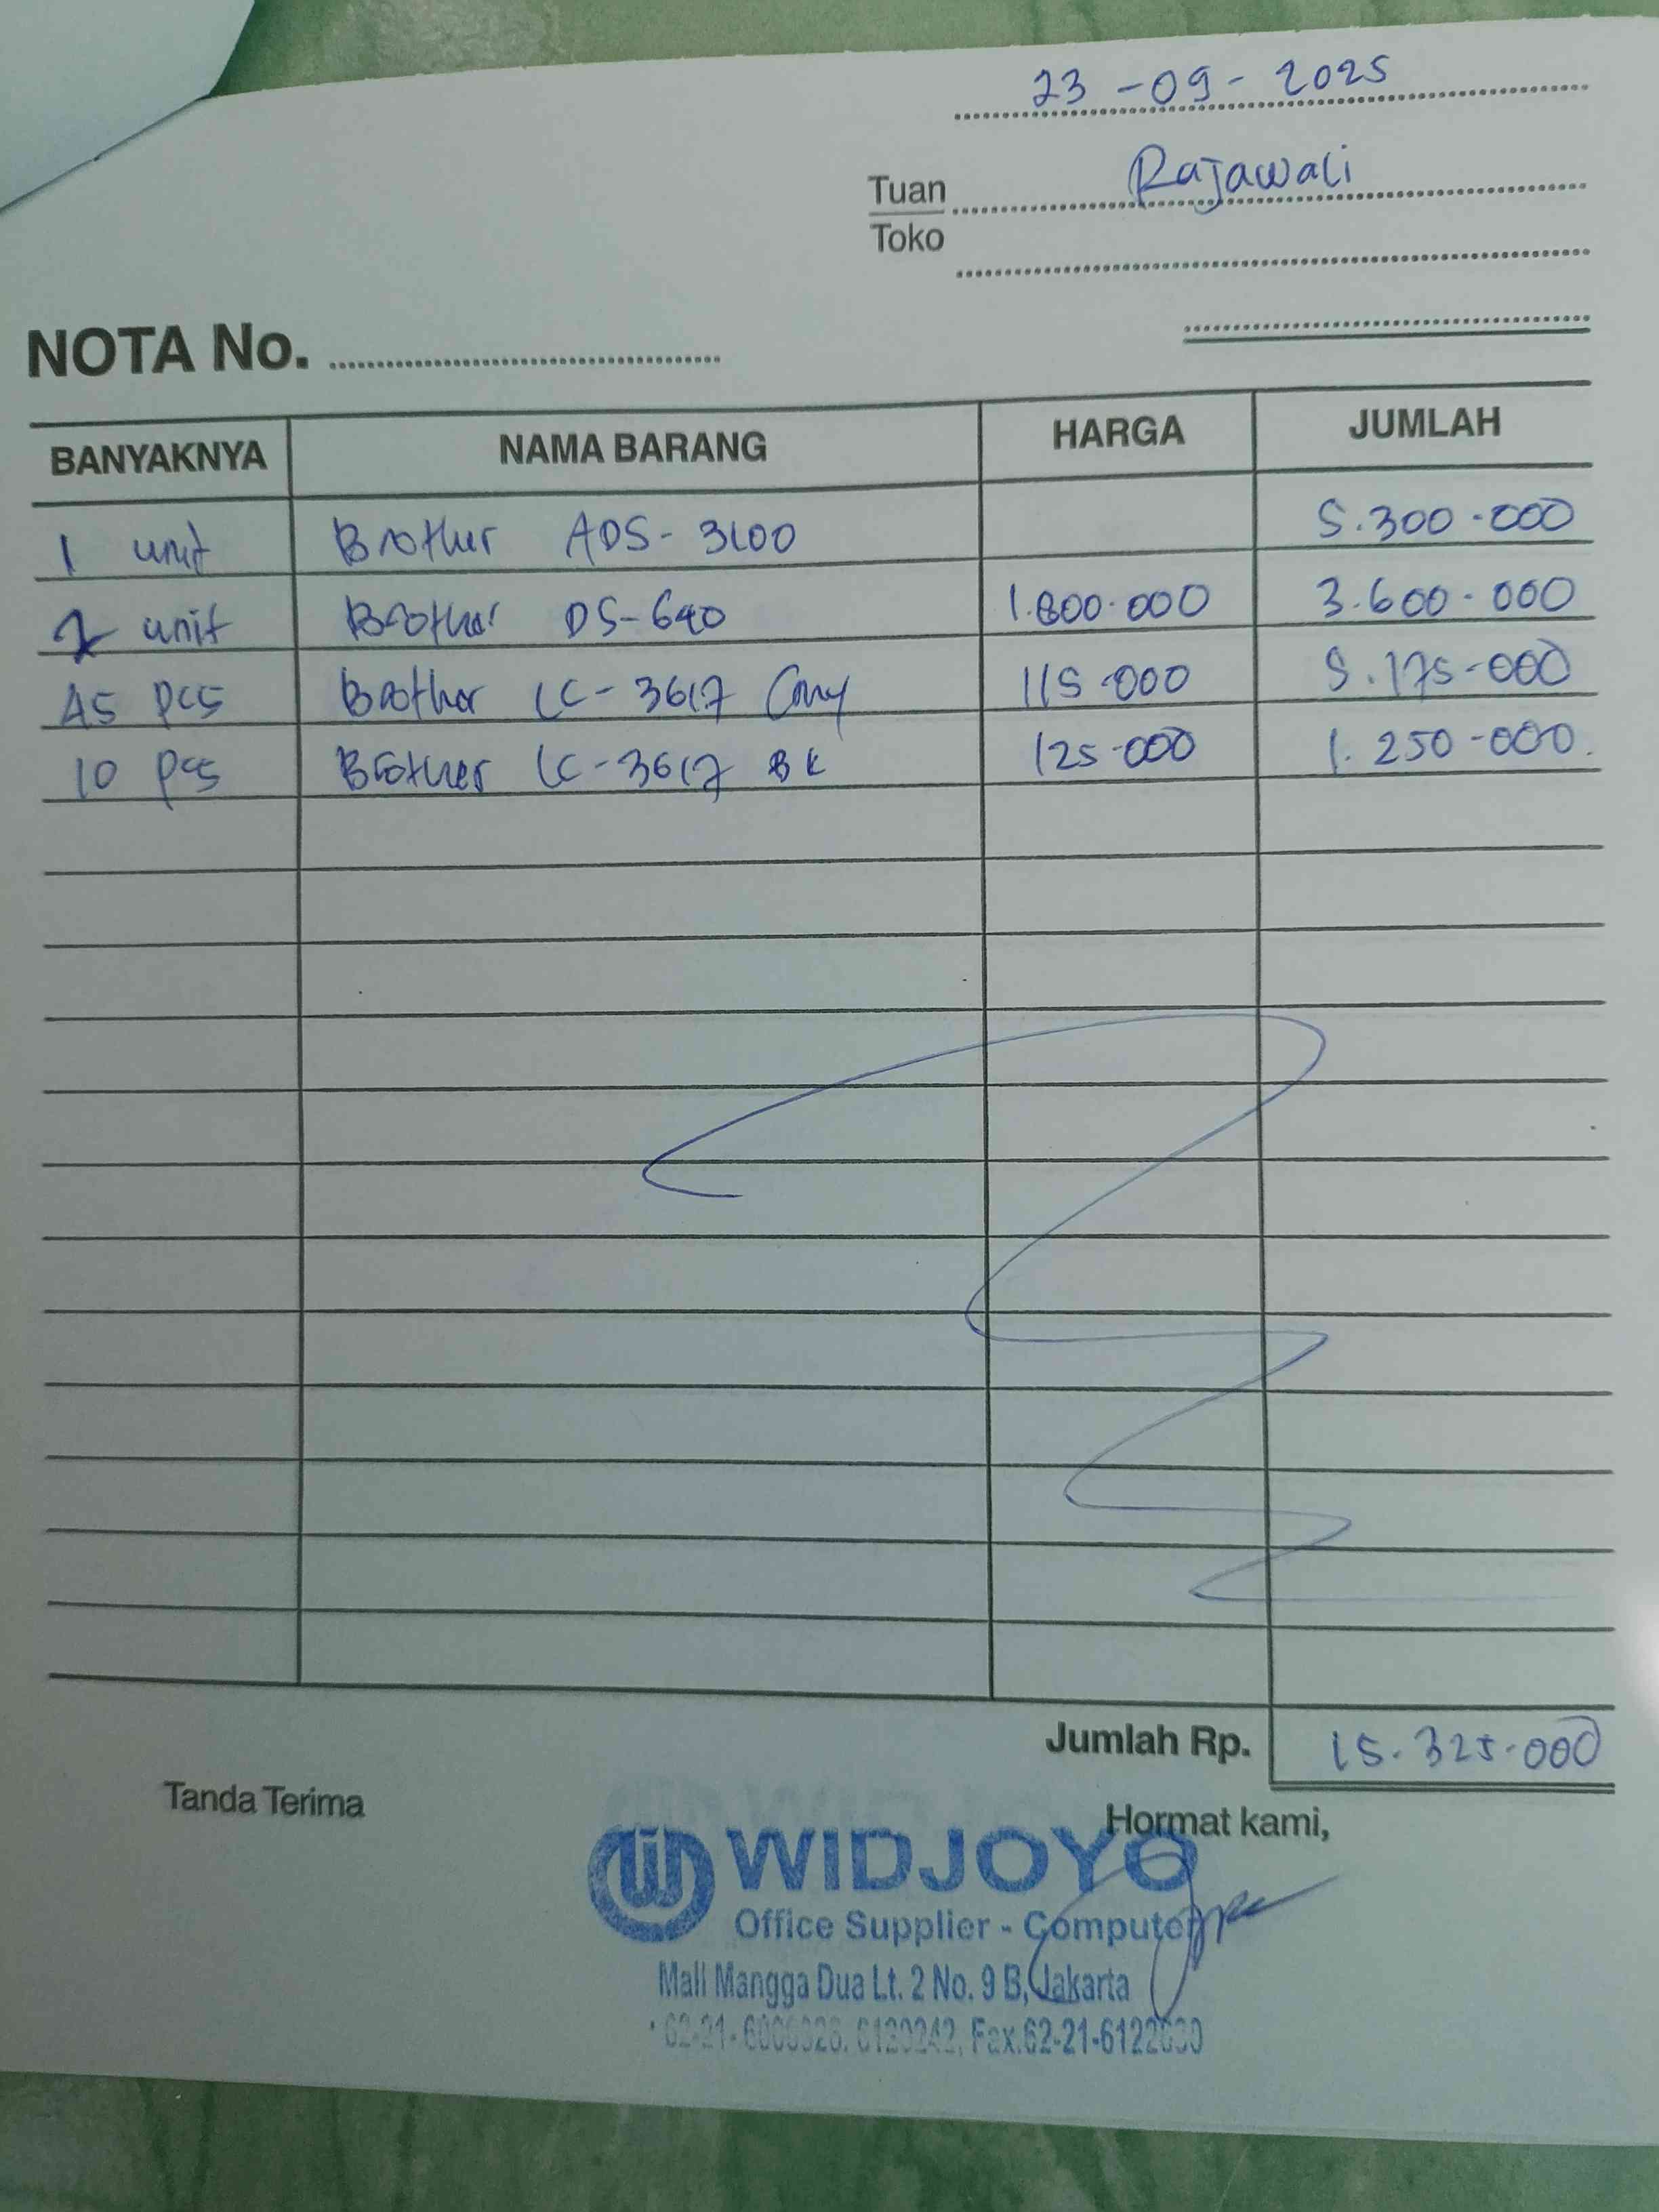 23-09-2025
Tuan Rajawali
Toko
NOTA No.
BANYAKNYA NAMA BARANG HARGA JUMLAH
1 unit Brother ADS-3100 5.300.000
2 unit Brother DS-640 1.800.000 3.600.000
45 pcs Brother LC-3617 Cmy 115.000 5.175.000
10 pcs Brother LC-3617 BK 125.000 1.250.000
Jumlah Rp. 15.325.000
Tanda Terima Hormat kami,
WIDJOYO
Office Supplier - Computer
Mall Mangga Dua Lt. 2 No. 9 B, Jakarta
Fax.62-21-